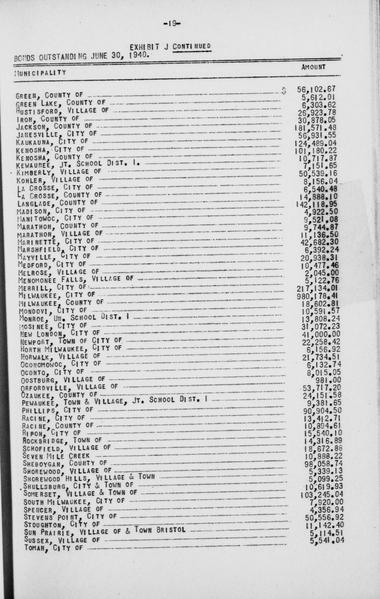 -19-
EXHIBIT J CONTINUED
BONDS OUTSTANDING JUNE 30, 1940.
MUNICIPALITY AMOUNT
GREEN, COUNTY OF $ 56,102.67
GREEN LAKE, COUNTY OF 5,612.01
HUSTISFORD, VILLAGE OF 6,303.62
IRON, COUNTY OF 26,923.78
JACKSON, COUNTY OF 30,878.05
JANESVILLE, CITY OF 181,571.48
KAUKAUNA, CITY OF 56,931.55
KENOSHA, CITY OF 124,489.04
KENOSHA, COUNTY OF 101,180.22
KEWAUNEE, JT. SCHOOL DIST. 1. 10,717.87
KIMBERLY, VILLAGE OF 7,151.65
KOHLER, VILLAGE OF 50,539.16
LA CROSSE, CITY OF 8,156.04
LA CROSSE, COUNTY OF 6,540.48
LANGLADE, COUNTY OF 14,888.10
MADISON, CITY OF 142,118.95
MANITOWOC, CITY OF 4,922.50
MARATHON, COUNTY OF 9,521.08
MARATHON, VILLAGE OF 9,744.87
MARINETTE, CITY OF 11,136.50
MARSHFIELD, CITY OF 42,682.30
MAYVILLE, CITY OF 6,392.24
MEDFORD, CITY OF 20,938.31
MELROSE, VILLAGE OF 10,477.46
MENOMONEE FALLS, VILLAGE OF 2,045.00
MERRILL, CITY OF 5,122.76
MILWAUKEE, CITY OF 217,134.01
MILWAUKEE, COUNTY OF 980,178.41
MONDOVI, CITY OF 18,602.81
MONROE, UN. SCHOOL DIST. 1 10,591.57
MOSINEE, CITY OF 13,808.24
NEW LONDON, CITY OF 31,072.23
NEWPORT, TOWN OF CITY OF 41,000.00
NORTH MILWAUKEE, CITY OF 22,258.42
NORWALK, VILLAGE OF 6,156.92
OCONOMOWOC, CITY OF 21,734.51
OCONTO, CITY OF 6,132.74
OOSTBURG, VILLAGE OF 8,015.05
ORFORDVILLE, VILLAGE OF 981.00
OZAUKEE, COUNTY OF 53,717.20
PEWAUKEE, TOWN & VILLAGE, JT. SCHOOL DIST. 1 24,151.58
PHILLIPS, CITY OF 9,381.65
RACINE, CITY OF 90,904.50
RACINE, COUNTY OF 13,412.71
RIPON, CITY OF 10,894.61
ROCKBRIDGE, TOWN OF 15,540.10
SCHOFIELD, VILLAGE OF 14,316.89
SEVEN MILE CREEK 18,672.86
SHEBOYGAN, COUNTY OF 10,898.22
SHOREWOOD, VILLAGE OF 98,058.74
SHOREWOOD HILLS, VILLAGE & TOWN 5,339.13
SHULLSBURG, CITY & TOWN OF 5,099.25
SOMERSET, VILLAGE & TOWN OF 10,619.93
SOUTH MILWAUKEE, CITY OF 103,245.04
SPENCER, VILLAGE OF 7,920.00
STEVENS POINT, CITY OF 4,356.94
STOUGHTON, CITY OF 50,556.92
SUN PRAIRIE, VILLAGE OF & TOWN BRISTOL 11,142.40
SUSSEX, VILLAGE OF 5,114.51
TOMAH, CITY OF 5,541.04